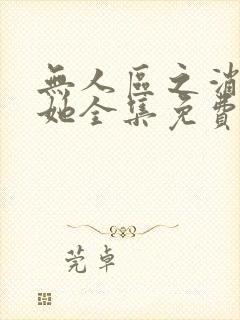 無人區之消
她全集免費
莞卓